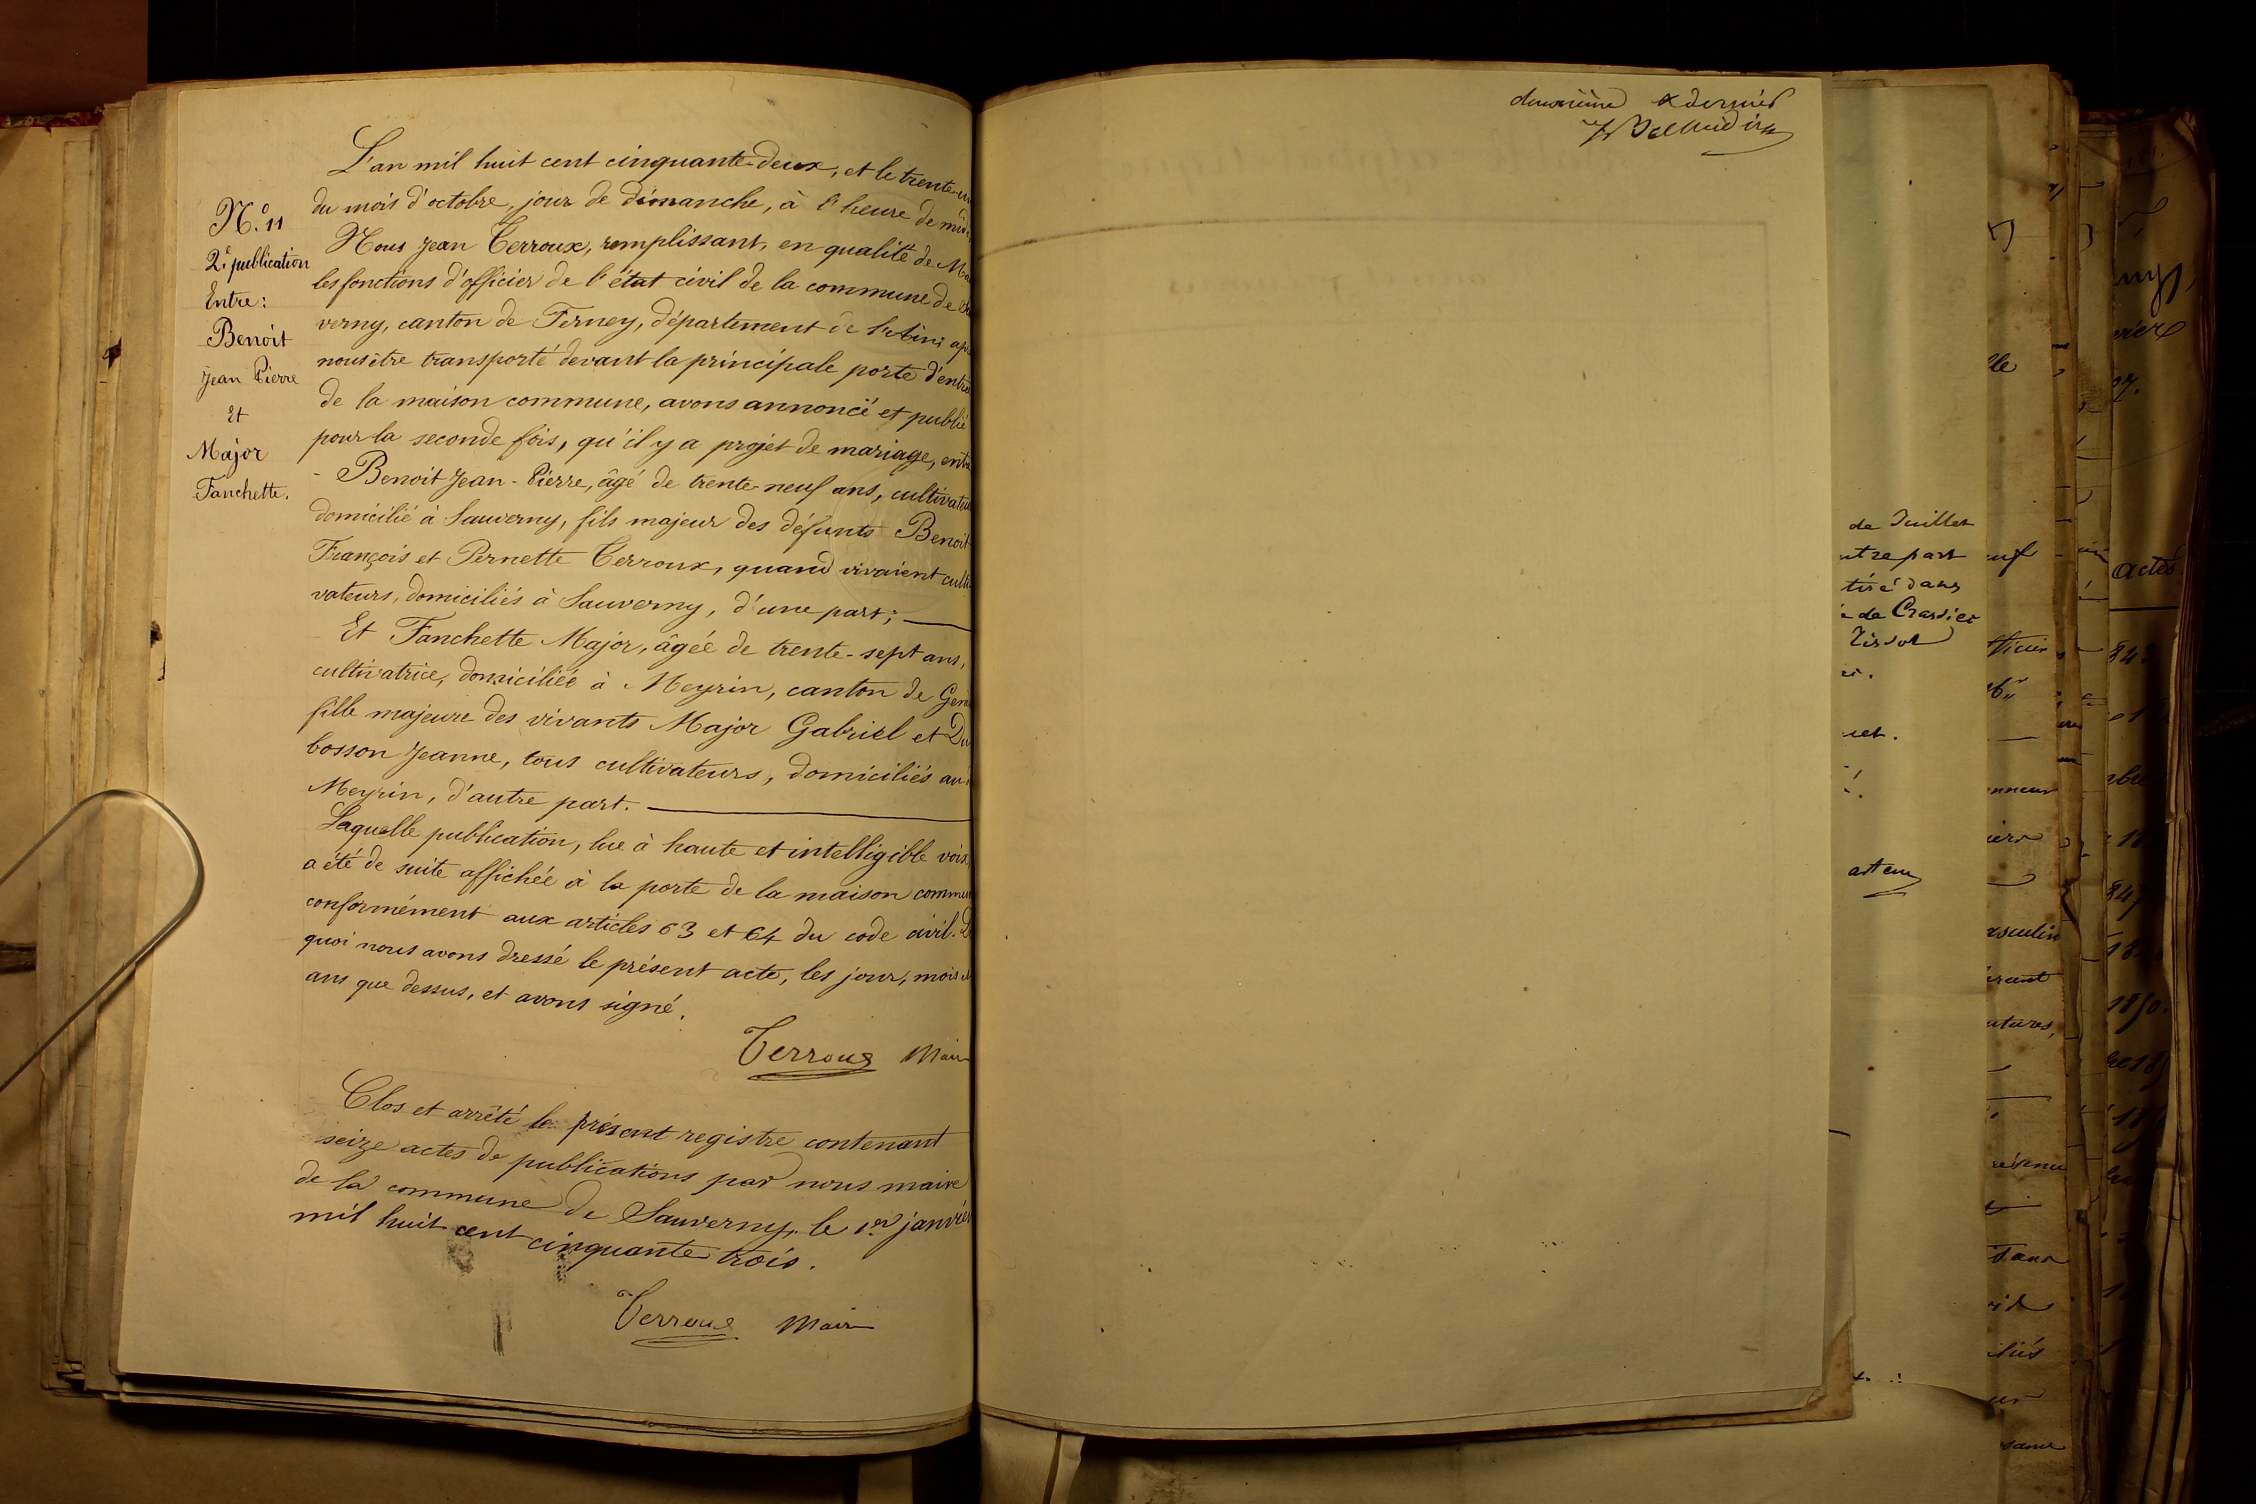 N.º 11
2.e publication
Entre:
Benoit
Jean Pierre
Et
Major
Fanchette.
L'an mil huit cent cinquante-deux, et le trente-un
du mois d'octobre, jour de dimanche, à l'heure de midi,
Nous Jean Terroux, remplissant, en qualité de Mai
les fonctions d'officier de l'état civil de la commune de
verny, canton de Ferney, département de l'Ain; ap
nous être transporté devant la principale porte d'entrée
de la maison commune, avons annoncé et publié
pour la seconde fois, qu'il y a projet de mariage, entre
- Benoit Jean-Pierre, âgé de trente-neuf ans, cultivateu
domicilié à Sauverny, fils majeur des défunts Benoit
François et Pernette Terroux, quand vivaient culti
vateurs, domiciliés à Sauverny, d'une part;
Et Fanchette Major, âgée de trente-sept ans,
cultivatrice, domiciliée à Meyrin, canton de Gen
fille majeure des vivants Major Gabriel et Du
bosson Jeanne, tous cultivateurs, domiciliés au
Meyrin, d'autre part.
Laquelle publication, lue à haute et intelligible voix,
a été de suite affichée à la porte de la maison commun
conformément aux articles 63 et 64 du code civil. D
quoi nous avons dressé le présent acte, les jour, mois et
ans que dessus, et avons signé.
Terroux Mair
Clos et arrêté le présent registre contenant
seize actes de publications par nous maire
de la commune de Sauverny, le 1.er janvier
mil huit cent cinquante trois.
Terroux Maire
deuxième & dernier
de Juillet
utre part
tiré dans
de Crassier
Tissot
actes
1850.